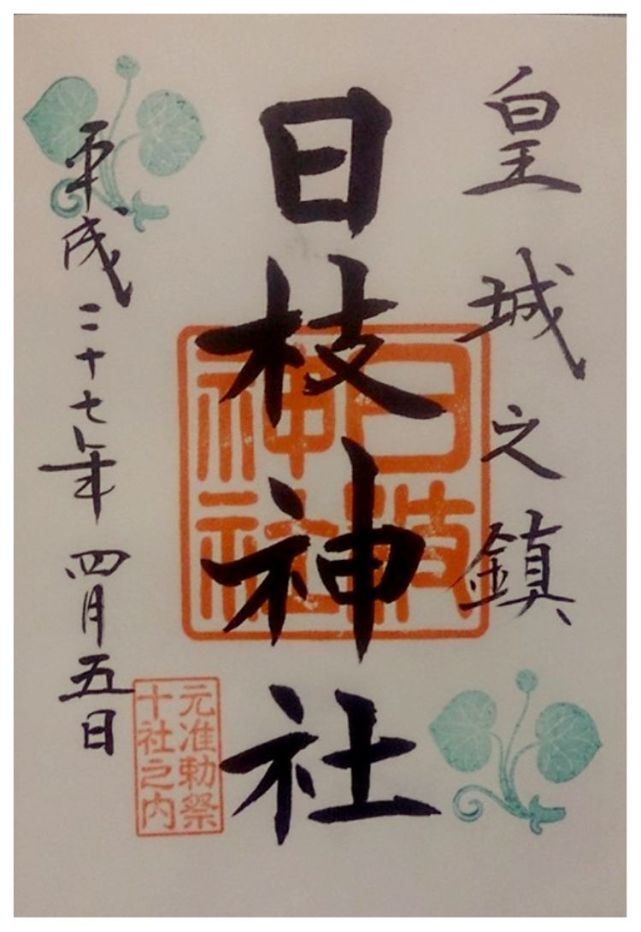 皇城之鎮
日枝神社
日枝
神社
元准勅祭
十社之内
平成二十七年四月五日